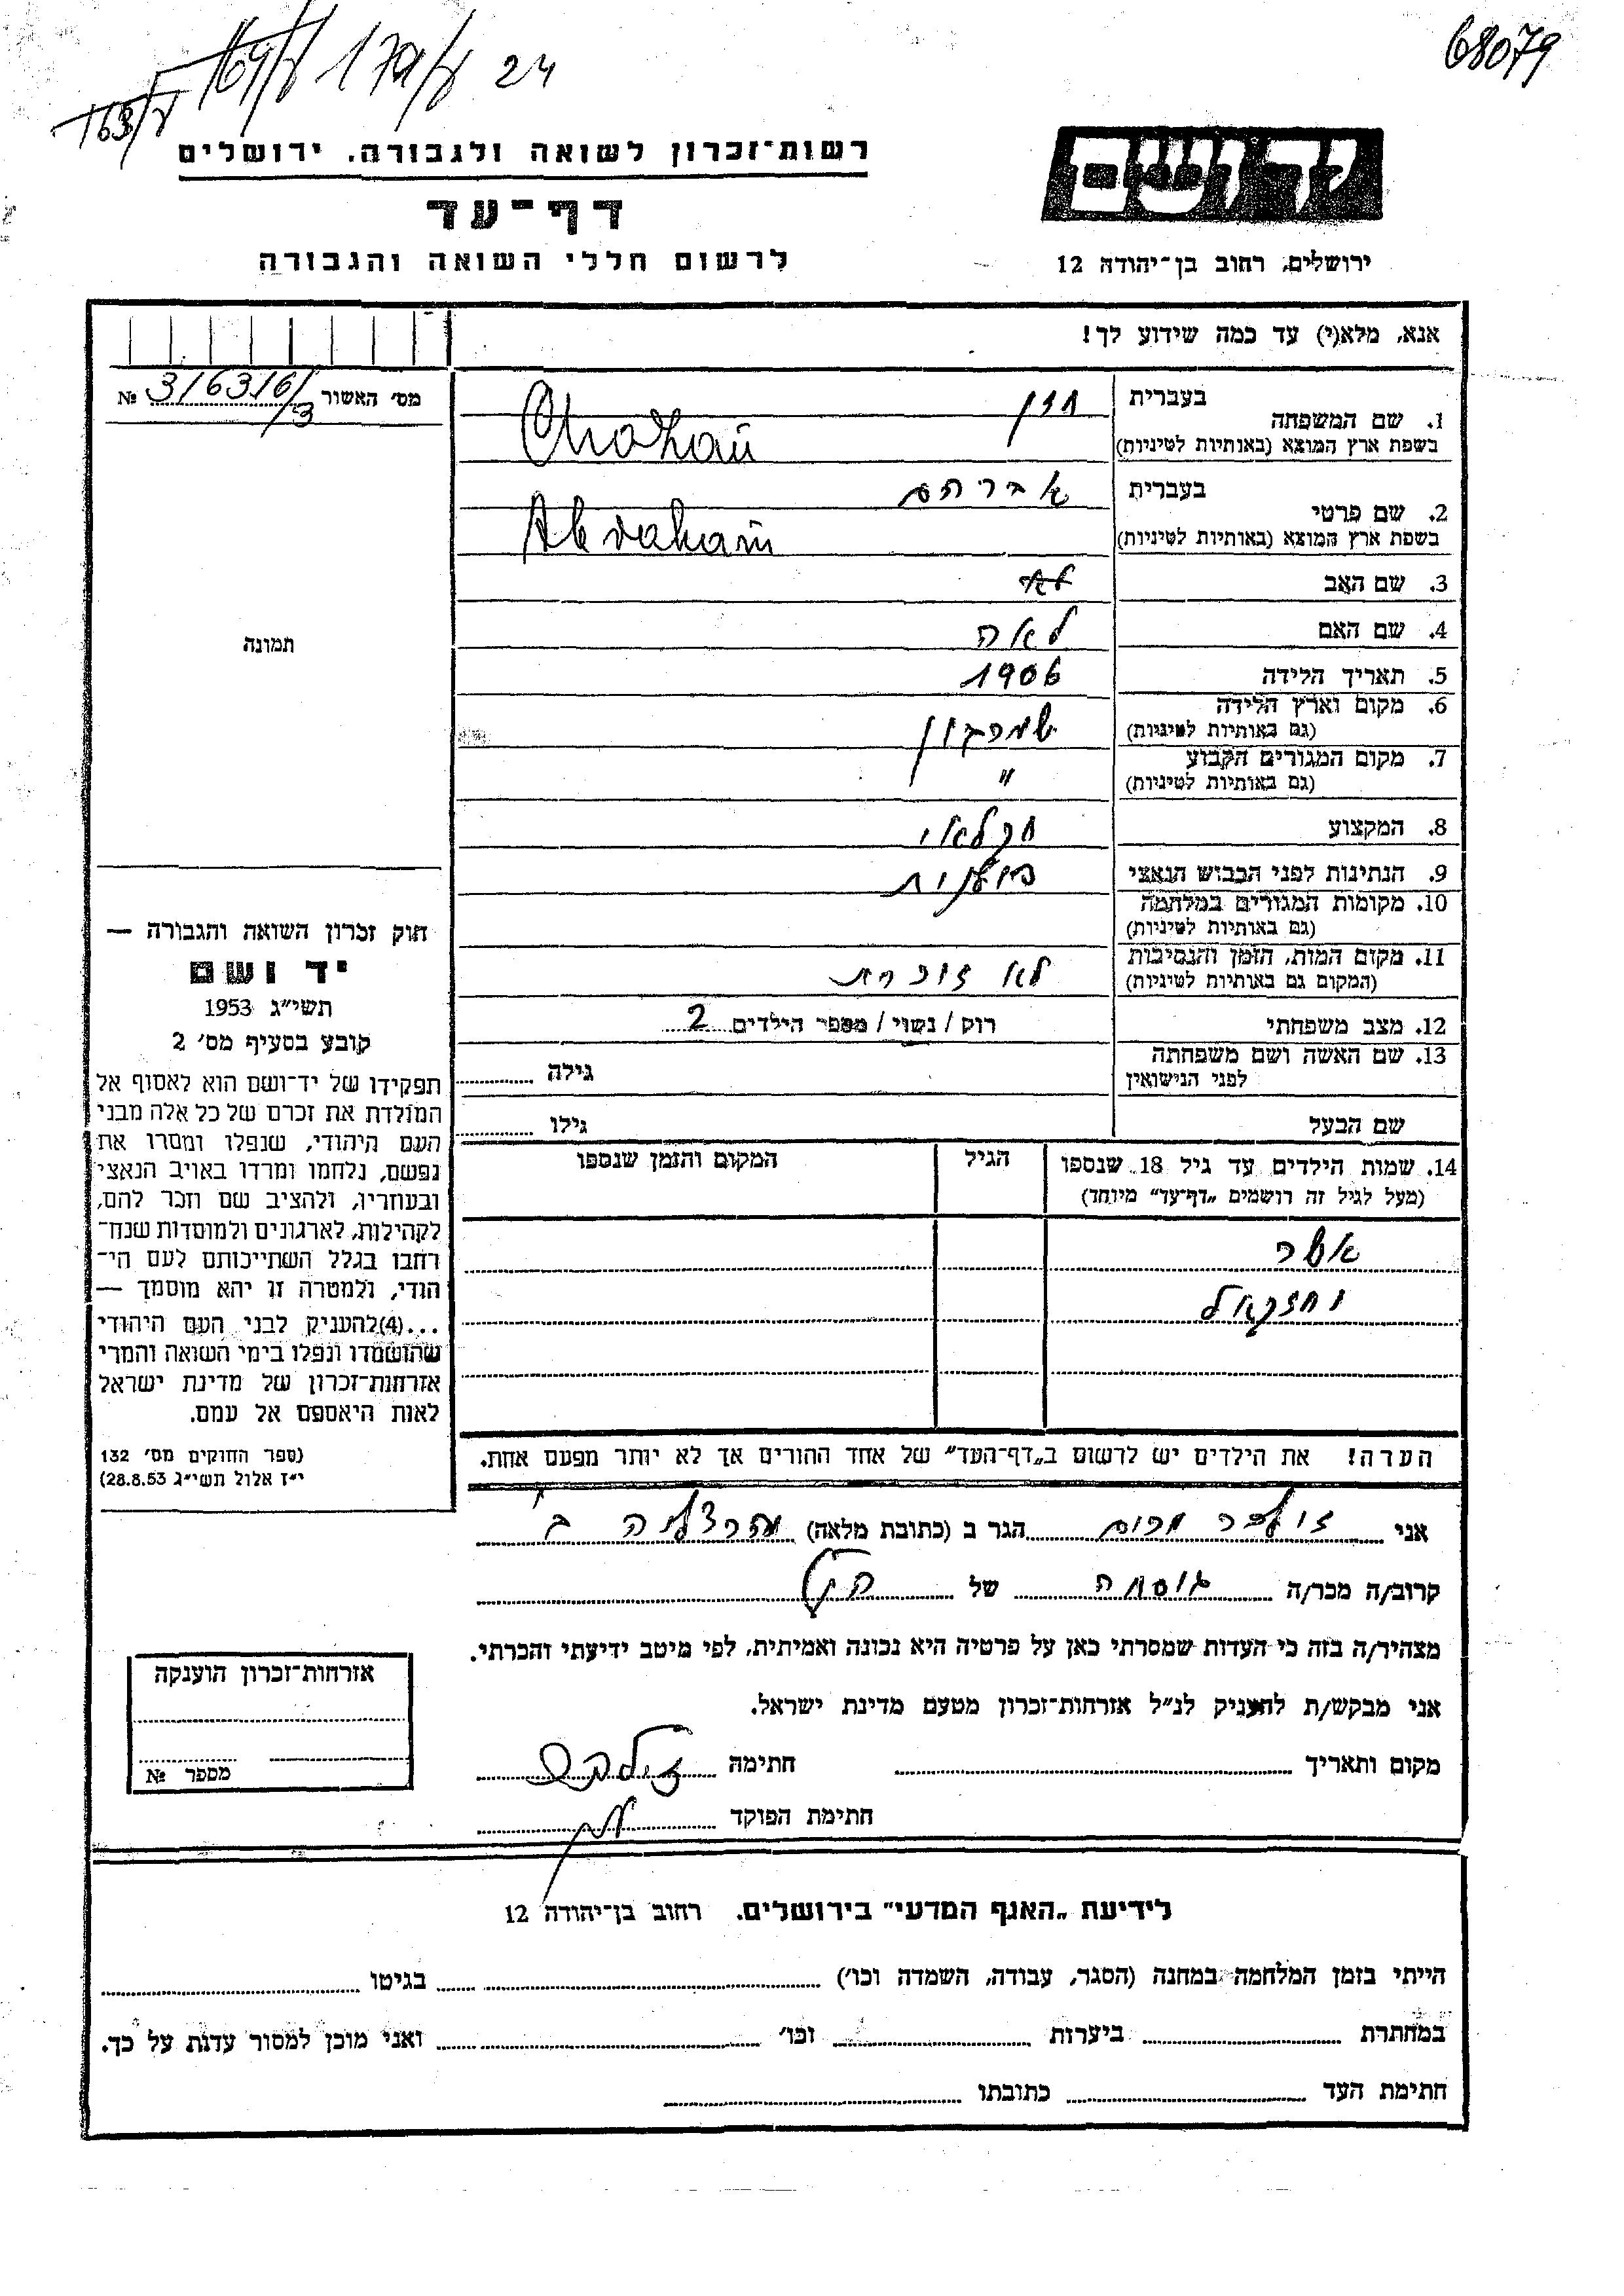 68079
169/ל 179/ל 24
163/ל
רשות־זכרון לשואה ולגבורה. ירושלים
יד ושם
דף־עד
לרשום חללי השואה והגבורה
ירושלים, רחוב בן־יהודה 12
אנא, מלא(י) עד כמה שידוע לך!
מס׳ האשור 316316/3 №
1. שם המשפחה בעברית חזן
בשפת ארץ המוצא (באותיות לטיניות) Chazan
2. שם פרטי בעברית אברהם
בשפת ארץ המוצא (באותיות לטיניות) Abraham
3. שם האב
4. שם האם לאה
5. תאריך הלידה 1906
6. מקום וארץ הלידה
(גם באותיות לטיניות)
7. מקום המגורים הקבוע "
(גם באותיות לטיניות)
8. המקצוע חקלאי
9. הנתינות לפני הכבוש הנאצי
10. מקומות המגורים במלחמה
(גם באותיות לטיניות)
11. מקום המות, הזמן והנסיבות לא זוכרת
(המקום גם באותיות לטיניות)
12. מצב משפחתי רוק / נשוי / מספר הילדים 2
13. שם האשה ושם משפחתה
לפני הנישואין גילה
שם הבעל גילו
14. שמות הילדים עד גיל 18 שנספו הגיל המקום והזמן שנספו
(מעל לגיל זה רושמים „דף־עד” מיוחד)
אשר
יחזקאל
הערה! את הילדים יש לרשום ב„דף־העד” של אחד ההורים אך לא יותר מפעם אחת.
תמונה
חוק זכרון השואה והגבורה —
יד ושם
תשי״ג 1953
קובע בסעיף מס׳ 2
תפקידו של יד־ושם הוא לאסוף אל
המולדת את זכרם של כל אלה מבני
העם היהודי, שנפלו ומסרו את
נפשם, נלחמו ומרדו באויב הנאצי
ובעוזריו, ולהציב שם וזכר להם,
לקהילות, לארגונים ולמוסדות שנח־
רחבו בגלל השתייכותם לעם הי־
הודי, ולמטרה זו יהא מוסמך —
...(4) להעניק לבני העם היהודי
שהושמדו ונפלו בימי השואה והמרי
אזרחות־זכרון של מדינת ישראל
לאות היאספם אל עמם.
(ספר החוקים מס׳ 132
י״ז אלול תשי״ג 28.8.53)
אני זילבר מרים הגר ב (כתובת מלאה) הרצליה ב
קרוב/ה מכר/ה גיסה של הנ״ל
מצהיר/ה בזה כי העדות שמסרתי כאן על פרטיה היא נכונה ואמיתית, לפי מיטב ידיעתי והכרתי.
אני מבקש/ת להעניק לנ״ל אזרחות־זכרון מטעם מדינת ישראל.
מקום ותאריך חתימה זילבר
חתימת הפוקד
אזרחות־זכרון הוענקה
מספר №
לידיעת „האגף המדעי” בירושלים. רחוב בן־יהודה 12
הייתי בזמן המלחמה במחנה (הסגר, עבודה, השמדה וכו׳) בגיטו
במחתרת ביערות וכו׳ ואני מוכן למסור עדות על כך.
חתימת העד כתובתו